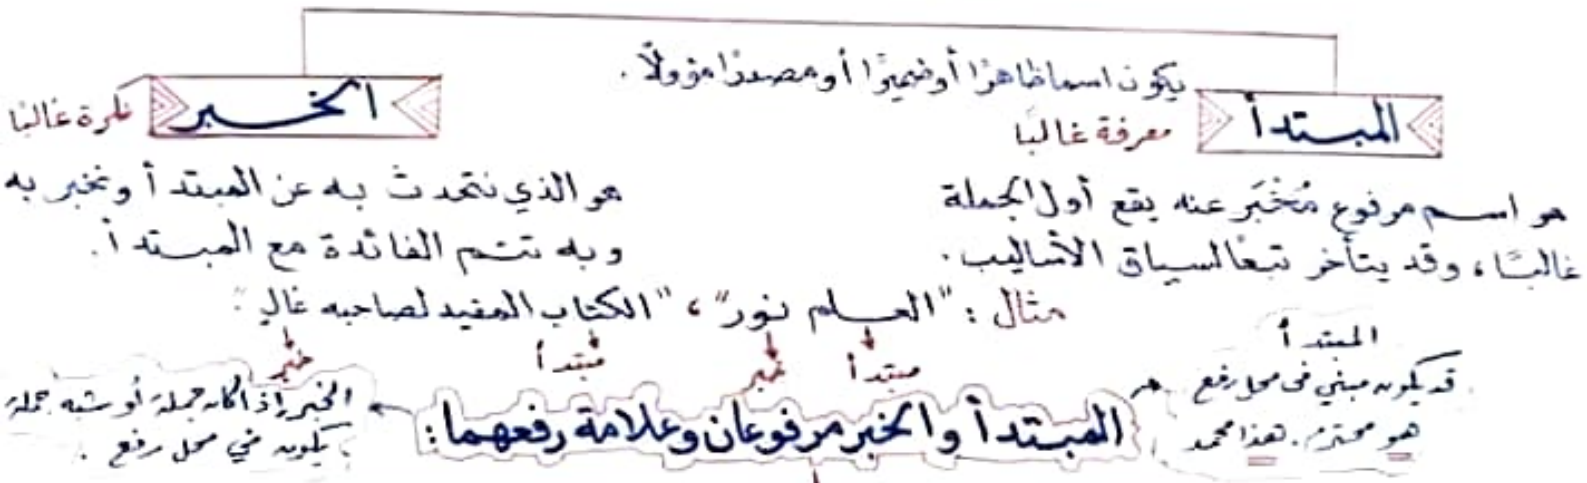 يكون اسما ظاهرًا أو ضميرًا أو مصدرًا مؤولًا .
المبتدأ
معرفة غالبًا
الخبر
نكرة غالبًا
هو اسم مرفوع مُخْبَر عنه يقع أول الجملة
غالبًا، وقد يتأخر تبعًا لسياق الأساليب .
هو الذي نتحدث به عن المبتدأ ونخبر به
وبه تتم الفائدة مع المبتدأ .
مثال : "العلم نور"، "الكتاب المفيد لصاحبه غالٍ".
مبتدأ خبر مبتدأ خبر
المبتدأ
قد يكون مبني في محل رفع
هو محترم . هذا محمد
المبتدأ والخبر مرفوعان وعلامة رفعهما :
الخبر إذا كان جملة أو شبه جملة
يكون في محل رفع .